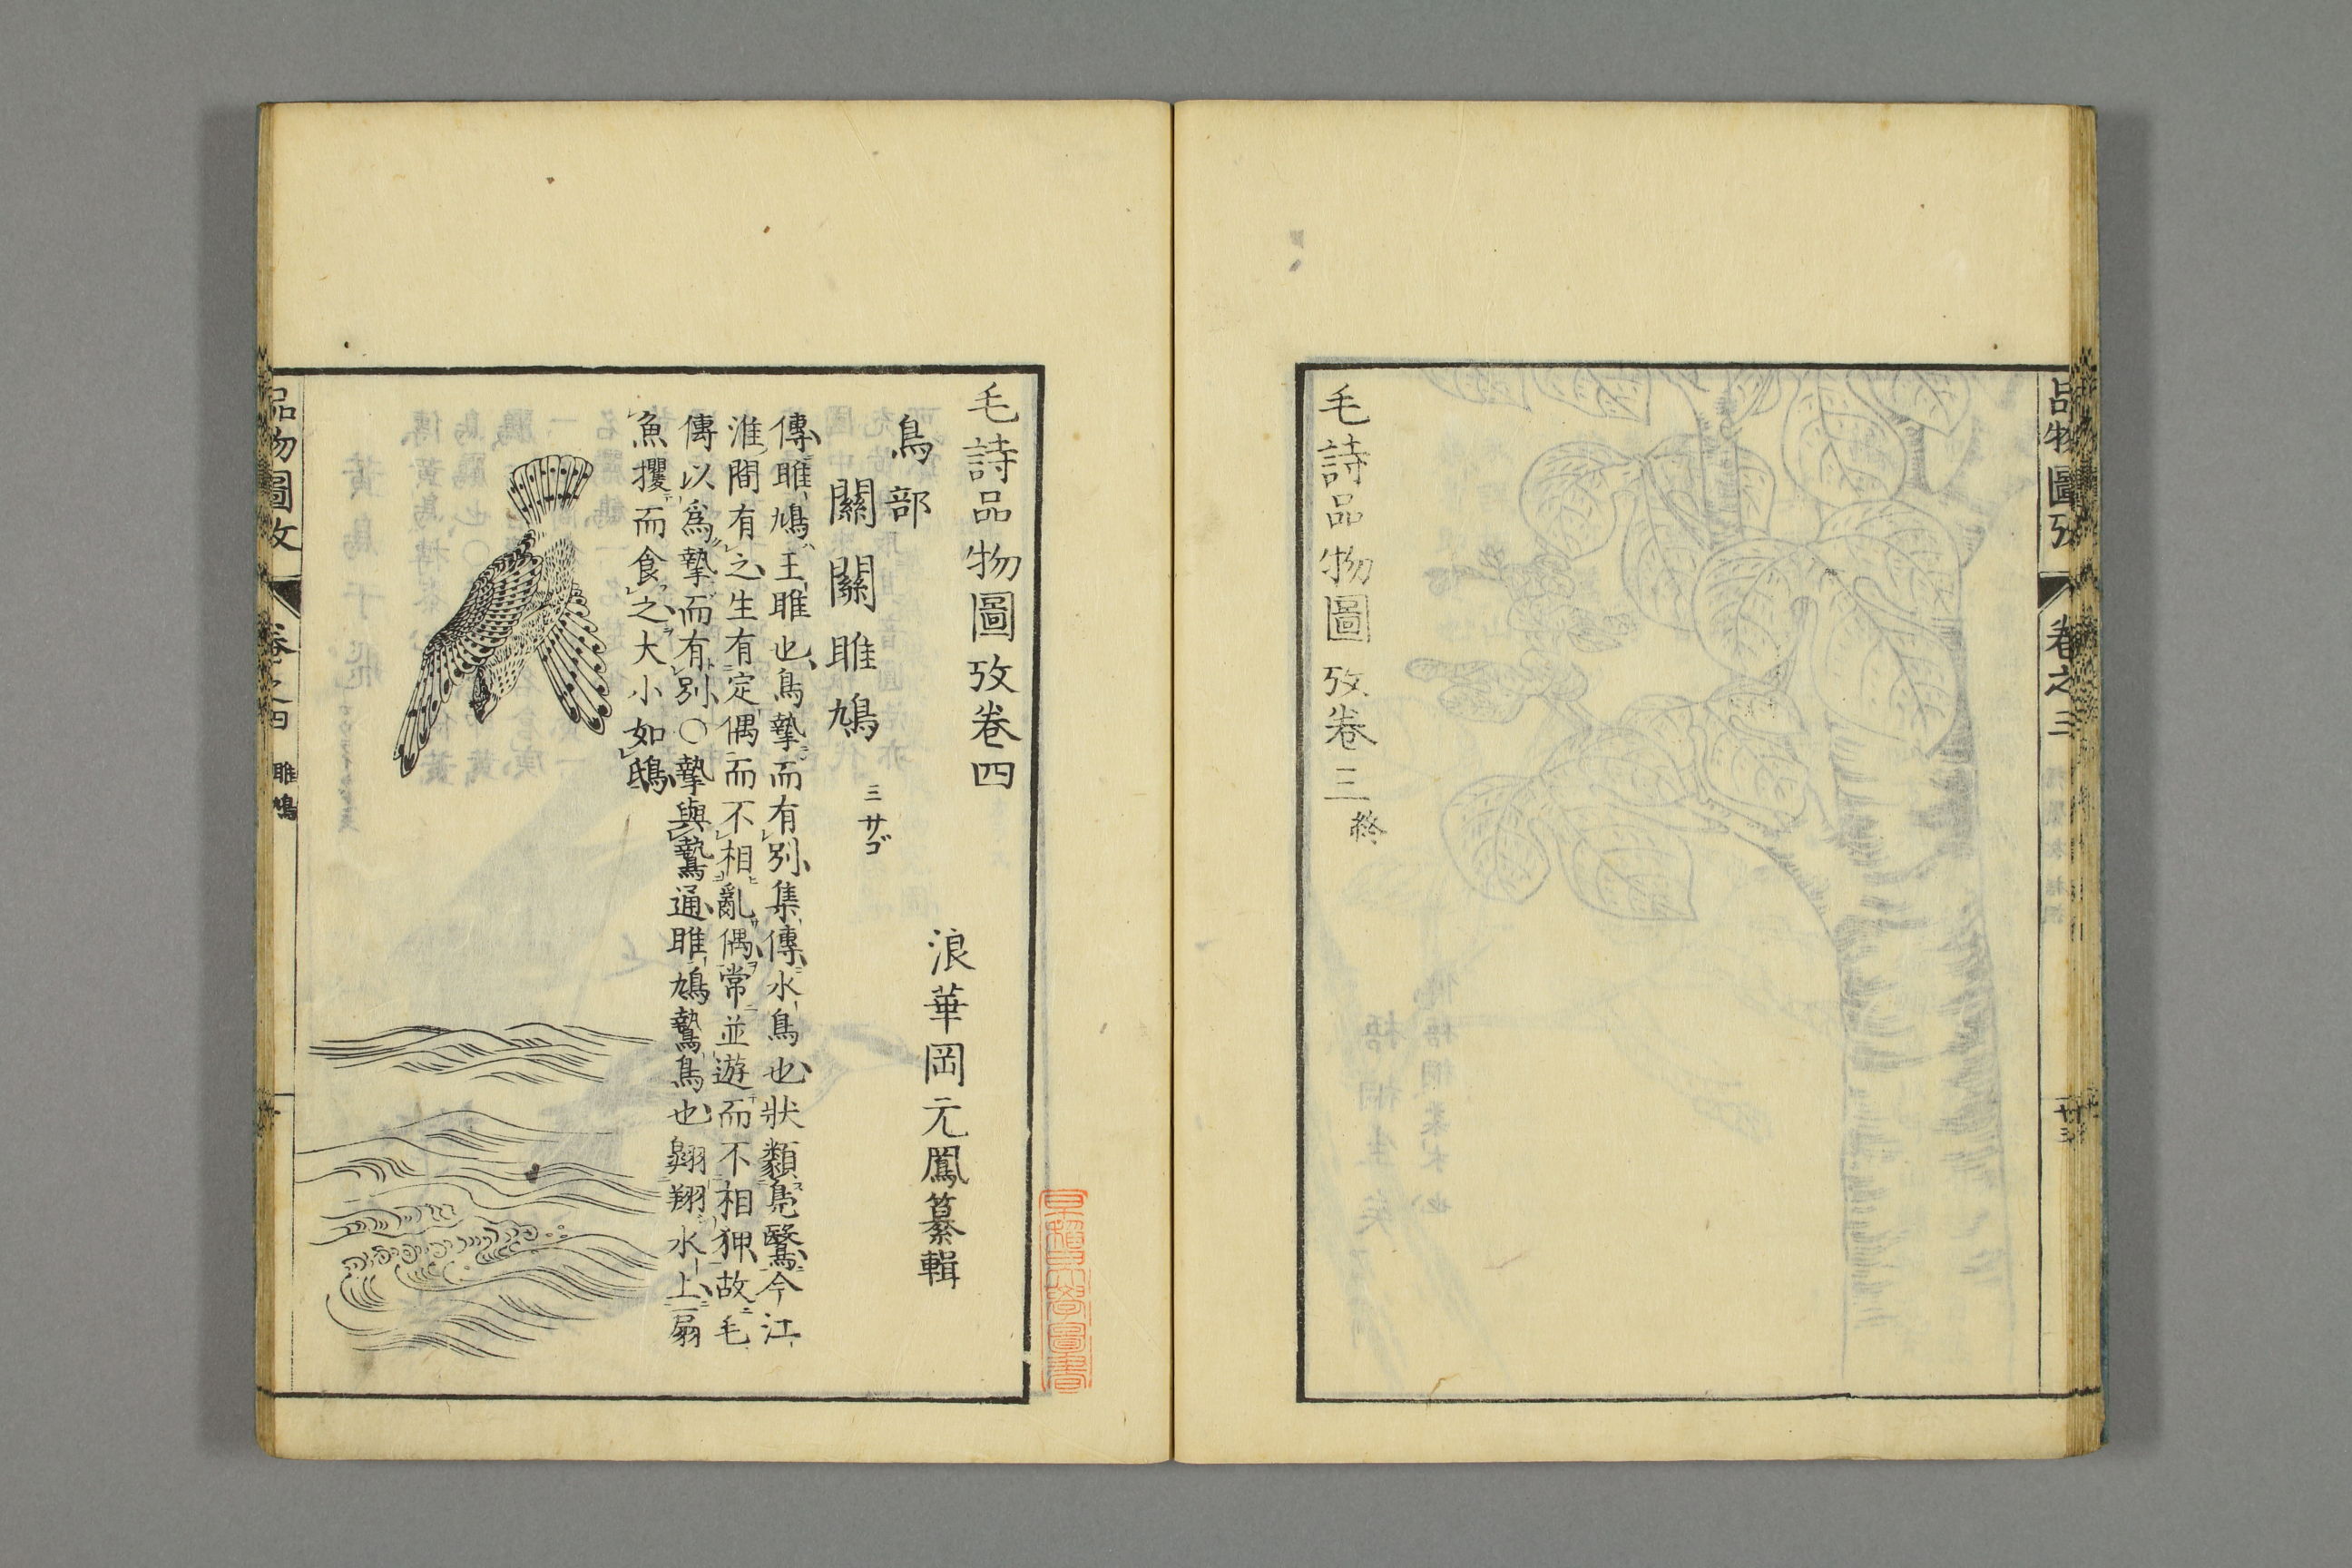 品物圖攷 卷之三 廿三
毛詩品物圖攷卷三終
毛詩品物圖攷卷四
浪華岡元鳳纂輯
鳥部
關關雎鳩 ミサゴ
傳雎鳩王雎也鳥摯而有別集傳水鳥也狀類鳧鷖今江
淮間有之生有定偶而不相亂偶常並遊而不相狎故毛
傳以爲摯而有別○摯與鷙通雎鳩鷙鳥也翱翔水上扇
魚攫而食之大小如鴟
品物圖攷 卷之四 雎鳩 一